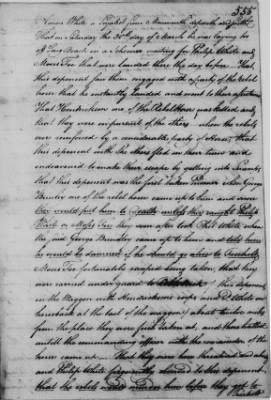 555
Aaron White a Loyalist from Monmouth deposeth and saith
That on Saturday the 30th day of March he was laying by
off Long Branch on a schooner waiting for Philip White and
Moses Fox that were landed there the day before. That
this deponent saw them engaged with a party of the rebel
horse that he instantly landed and went to their assistance
That Hendrickson one of the Rebel horse was killed and
that they were in pursuit of the others when the rebels
were reinforced by a considerable party of Horse, that
this deponent with the others fled in their turns and
endeavoured to make their escape by getting into Swamps
that this deponent was the first taken Prisoner when George
Brindley one of the rebel horse came up to him and swore
they would put him to death unless they caught Philip
White or Moses Fox they soon after took Phil White when
the said George Brindley came up to him and told him
he would be damned if he should go alive to Freehold
Moses Fox fortunately escaped being taken, that they
were carried under guard to this deponent
in the Waggon with Hendrickson's corps and White on
horseback at the tail of the waggon) about twelve miles
from the place they were first taken at, and there halted
untill the commanding officer with the remainder of the
horse came up. That they were here threatened and abused
and Philip White frequently alluded to this deponent
that the rebels would murder him before they got to
Freehold